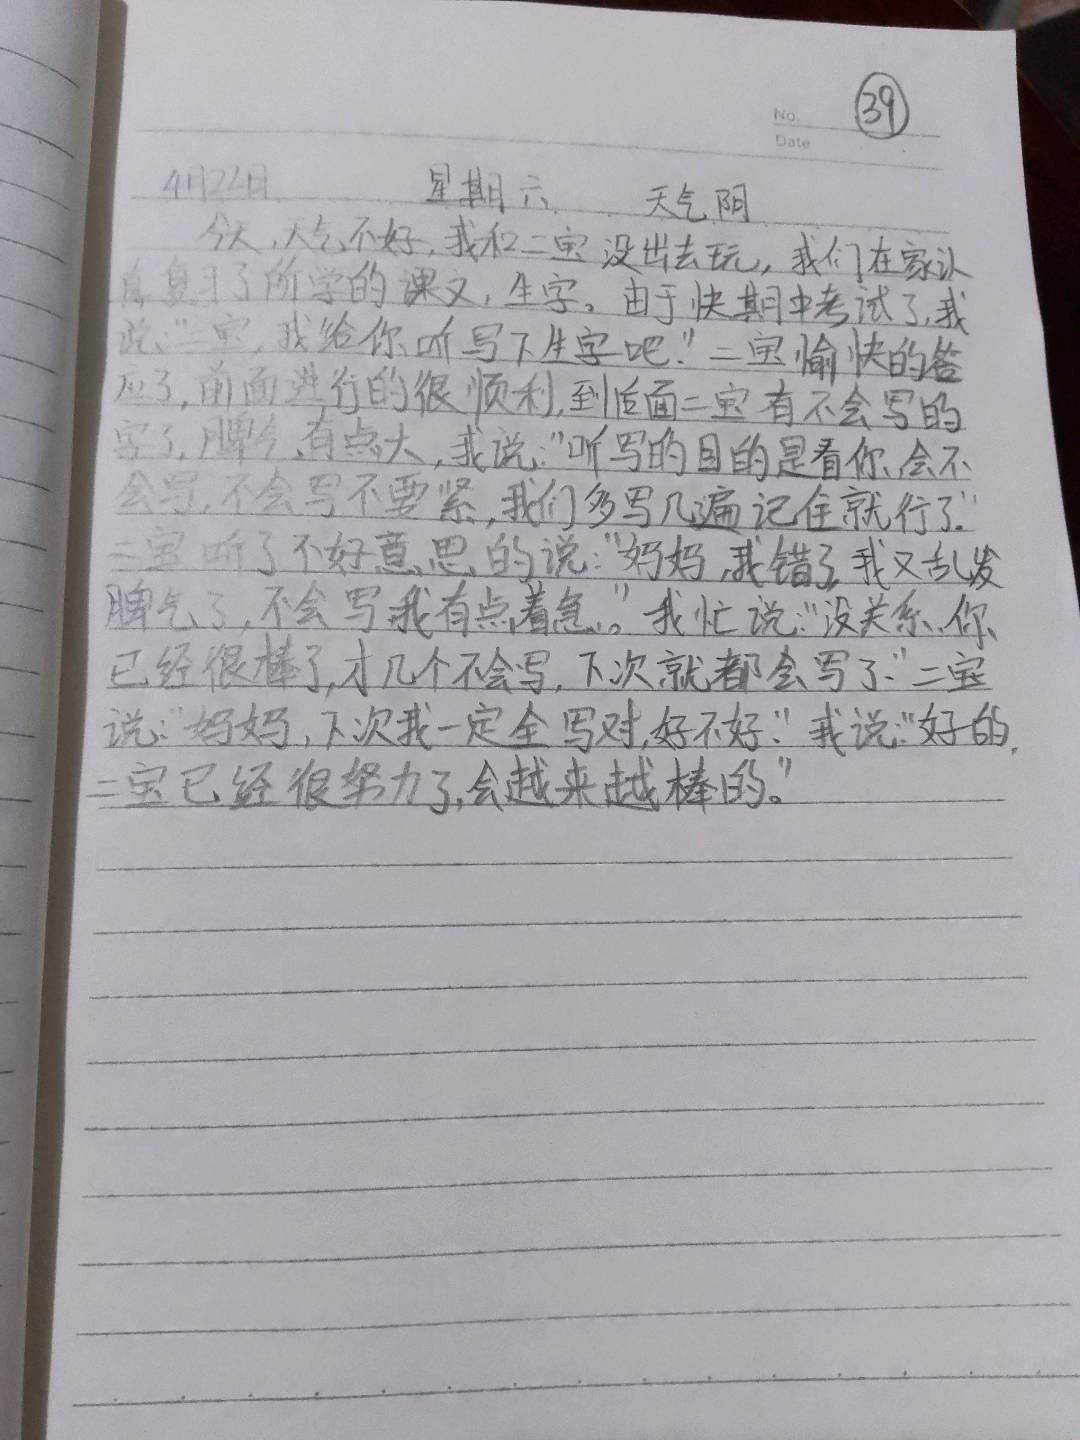 No. 39
Date
4月22日 星期六 天气阴
今天,天气不好,我和二宝没出去玩,我们在家认
真复习了所学的课文,生字。由于快期中考试了,我
说:"二宝,我给你听写下生字吧."二宝愉快的答
应了,前面进行的很顺利,到后面二宝有不会写的
字了,脾气有点大,我说:"听写的目的是看你会不
会写,不会写不要紧,我们多写几遍记住就行了."
二宝听了不好意思的说:"妈妈,我错了,我又乱发
脾气了,不会写我有点着急。"我忙说:"没关系,你
已经很棒了,才几个不会写,下次就都会写了."二宝
说:"妈妈,下次我一定全写对,好不好."我说:"好的,
二宝已经很努力了,会越来越棒的。"